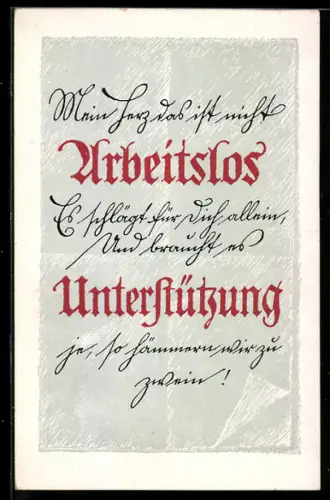 Mein Herz das ist nicht
Arbeitslos
Es schlägt für Dich allein,
Und braucht es
Unterstützung
je, so hämmern wir zu
zwein!